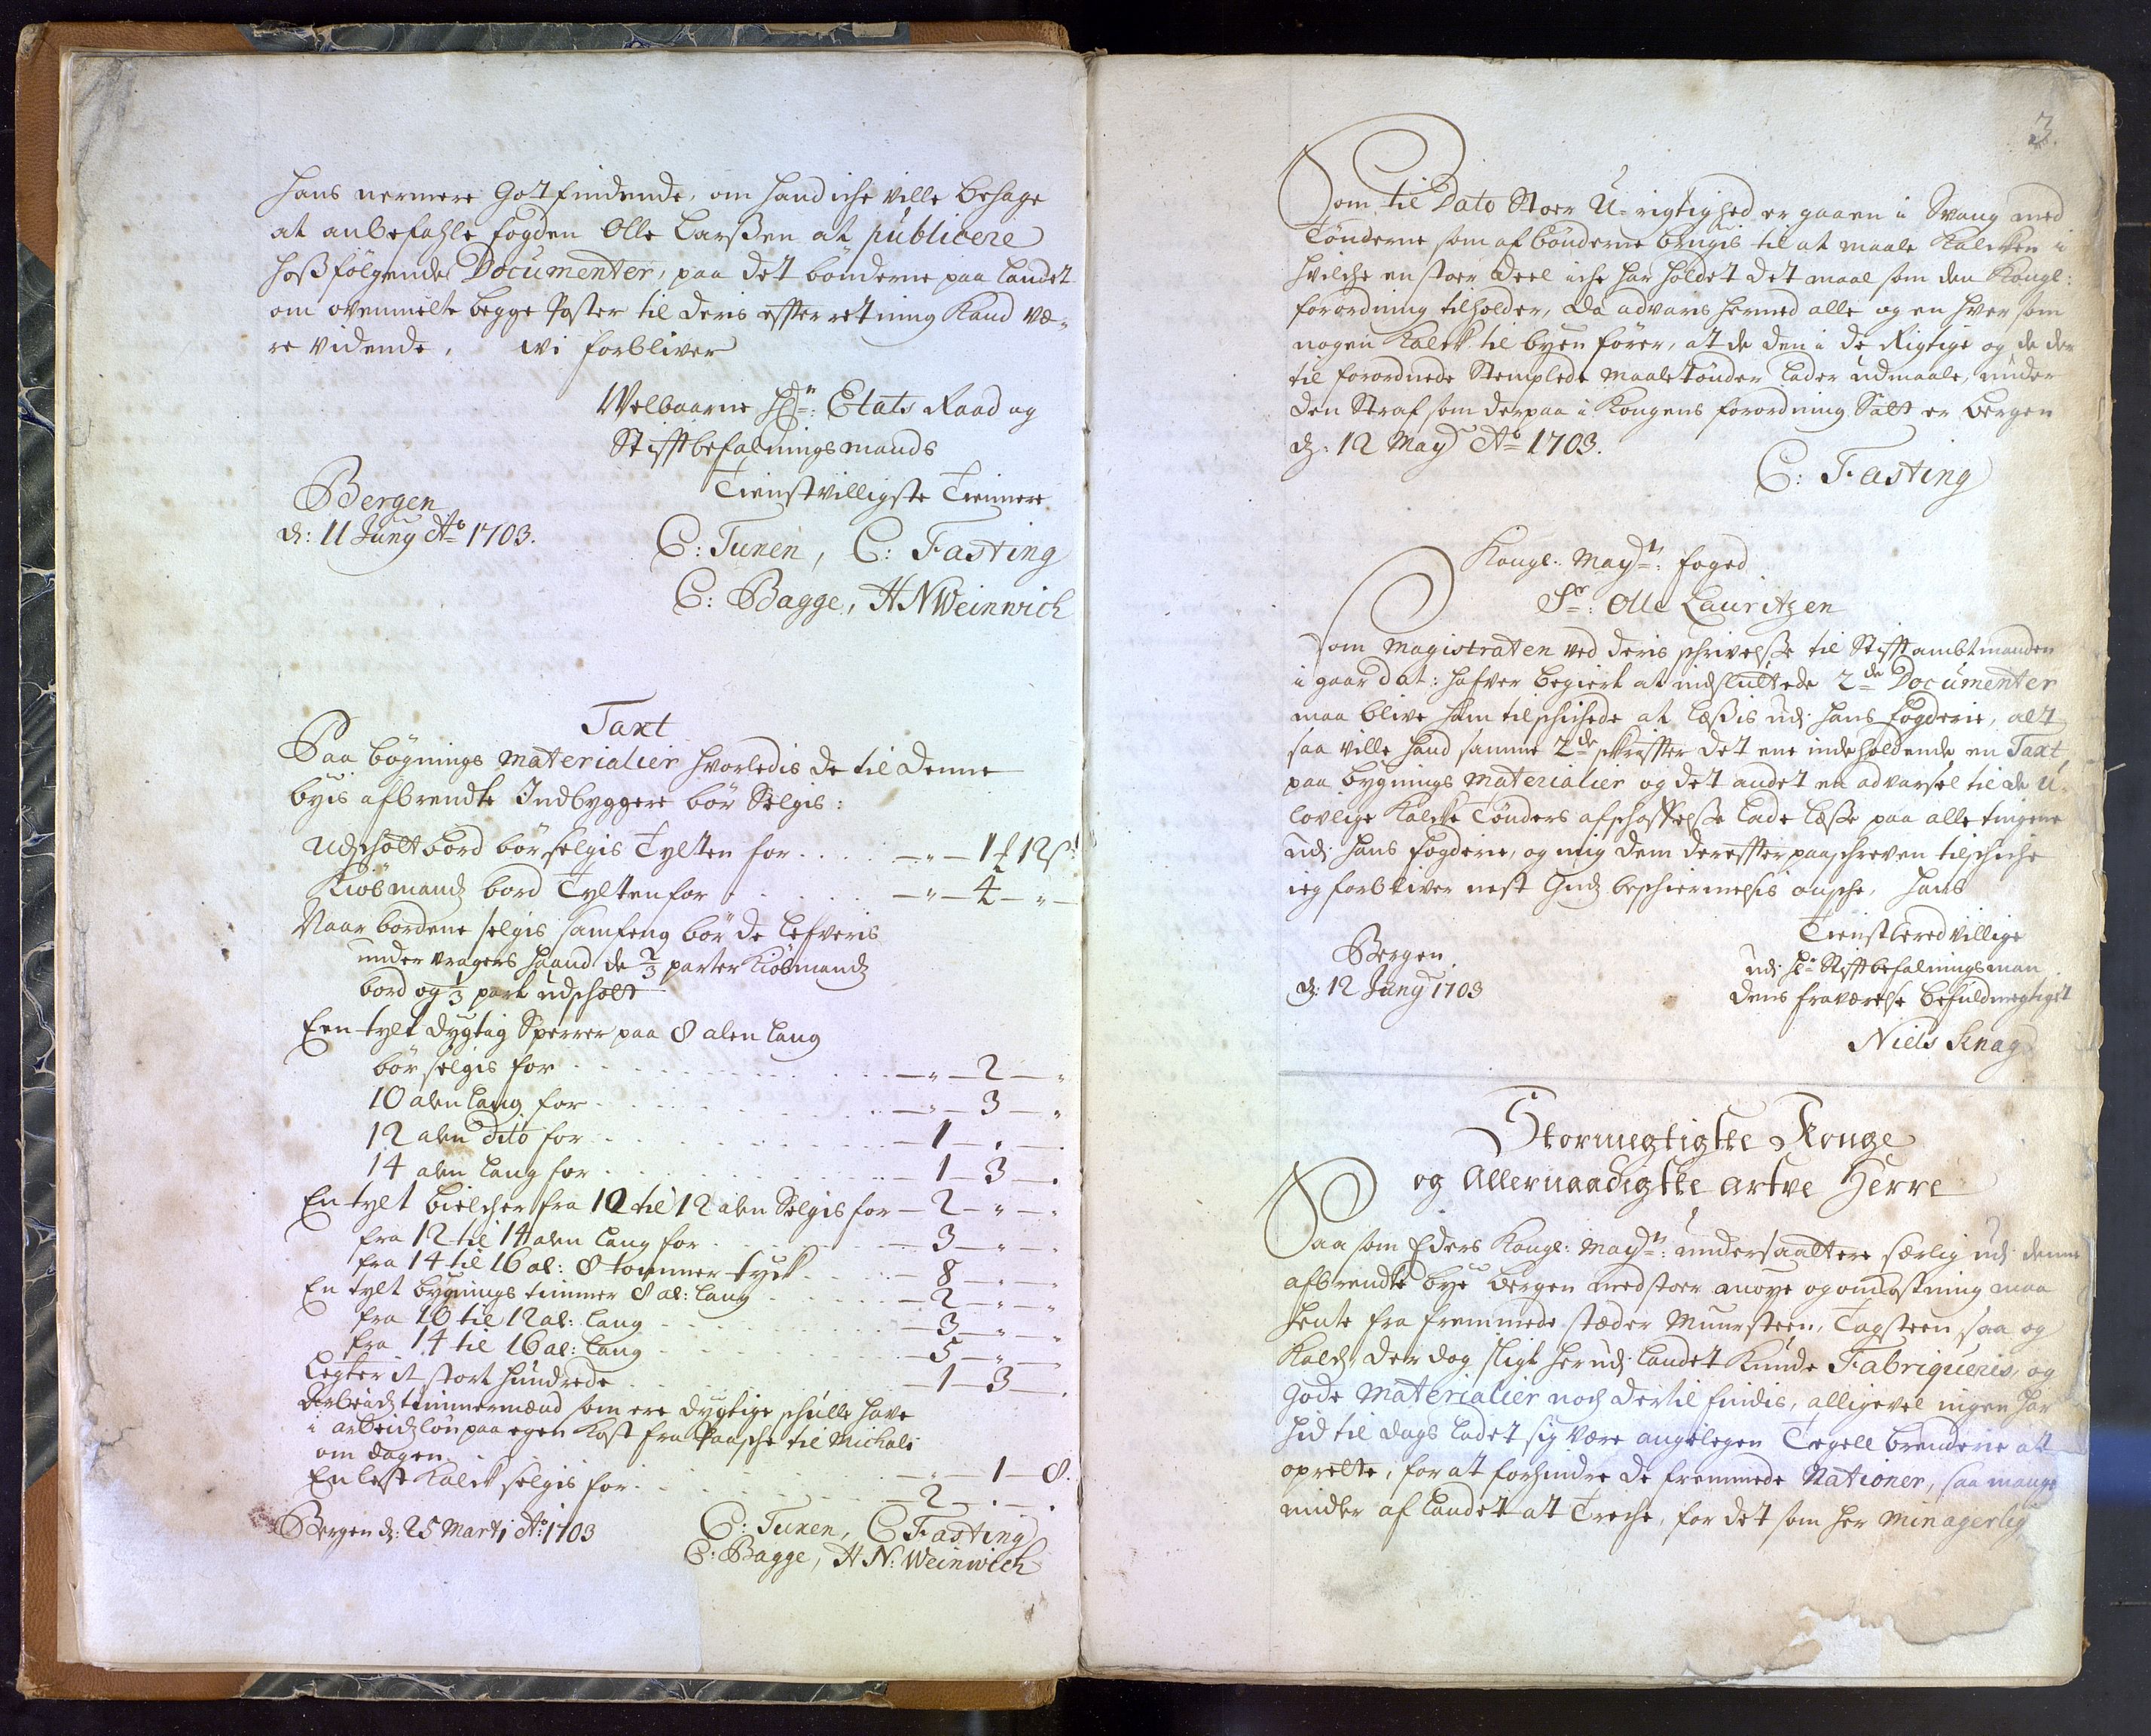 hans nermere Gotfindende, om hand iche ville behage
at anbefahle fogden Olle Larsen at publicere
hoßfölgende Documenter, paa det bönderne paa landet
om ovenmelte begge Poster til deris efterretning kand væ-
re vidende, wi forbliver
Welbaarne Hr: Etats Raad og
Stifftbefalningsmands
Tienstvilligste Tienere
Bergen
d: 11 Juny Ao 1703.
C: Tuxen, C: Fasting
C: Bagge, H N Weinwich
Taxt
Paa bögnings materialier hvorledis de til denne
byis afbrendte Indbyggere bör Selgis:
Udschott bord bör selgis Tylten for .... — „ — 1 ʄ 12 s:
Kiöbmands bord Tylten for ..... — „ — 4 — „ —
Naar bordene selgis samfeng bör de lefveris
under vragers haand de 2/3 parter Kiöbmands
bord og 1/3 part udschott
Een tylt dygtig Sperrer paa 8 alen lang
bör selgis for ..... — „ — 2 — „
10 alen lang for ..... — „ — 3 — „
12 alen dito for ..... — 1 — . — .
14 alen lang for ..... — 1 — 3 — .
En tylt bielcher fra 10 til 12 alen Selgis for — 2 — „ — .
fra 12 til 14 alen lang for ..... — 3 — „ — .
fra 14 til 16 al: 8 tommer tyck ..... — 8 — „ — „
En tylt bygnings timmer 8 al: lang ..... — 2 — „ — „
fra 10 til 12 al: lang ..... — 3 — „ — „
fra 14 til 16 al: lang ..... — 5 — „ — „
Legter it stort hundrede ..... — 1 — 3 — .
Arbeids timmermænd som ere dygtige schulle have
i arbeidslön paa egen Kost fra Paasche til Michali
om dagen ..... — „ — 1 — 8.
En lest Kalck selgis for ..... — 2 — . — .
Bergen d: 25 Marti Ao: 1703
C: Tuxen, C Fasting
C: Bagge, H N: Weinwich
3.
Som til Dato Stoer U-rigtighed er gaaen i Svang med
Tönderne som af bönderne brugis til at maale Kalcken i
hvilche en stoer deel iche har holdet det maal som den Kongl:
forordning tilholder, da advaris hermed alle og en hver som
nogen Kalck til byen förer, at de den i de Rigtige og de der
til forordnede Stemplede maaletönder lader udmaale, under
den Straf som derpaa i Kongens forordning Satt er Bergen
d: 12 May Ao 1703.
C: Fasting
Kongl: Mayts: foged
Sr: Olle Lauritzen
Som Magistraten ved deris schrivelße til Stifftambtmanden
i gaar dat: hafver begiert at indsluttede 2de Documenter
maa blive ham tilschichede at læßis udj hans fogderie, alt
saa ville hand samme 2de skriffter det ene indeholdende en Taxt
paa bygnings materialier og det andet en advarsel til de u-
lovlige Kalcke Tönders afschaffelße lade læße paa alle tingene
udj hans fogderie, og mig dem derefter paaschreven tilschiche
ieg forbliver nest Guds beschiermelsis ønsche, hans
Tienstberedvillige
Bergen
d: 12 Juny 1703
udj Hr Stifftbefalningsman
dens fraværelse befuldmegtiget
Niels Knag
Stormegtigste Konge
og Allernaadigste Arfve Herre
Saa som Eders Kongl: Mayts: undersaattere særlig udj denne
afbrendte bye Bergen med stoer moye og omkostning maa
hente fra fremmede stæder Muursteen, Tagsteen saa og
Kalck, der dog sligt her udj landet kunde Fabriqueris, og
gode Materialier nock dertil findis, alligevel ingen har
hid til dags ladet sig være angelegen Tegell brenderie att
oprette, for at forhindre de fremmede Nationer, saa mange
midler af landet at Treche, for det som her minagerlig